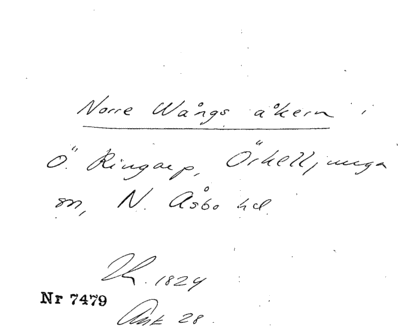 Norre Wångs åkern i
Ö. Ringarp, Örkelljunga
sn, N. Åsbo hd.
Th. 1824
Nr 7479
Ank 28.